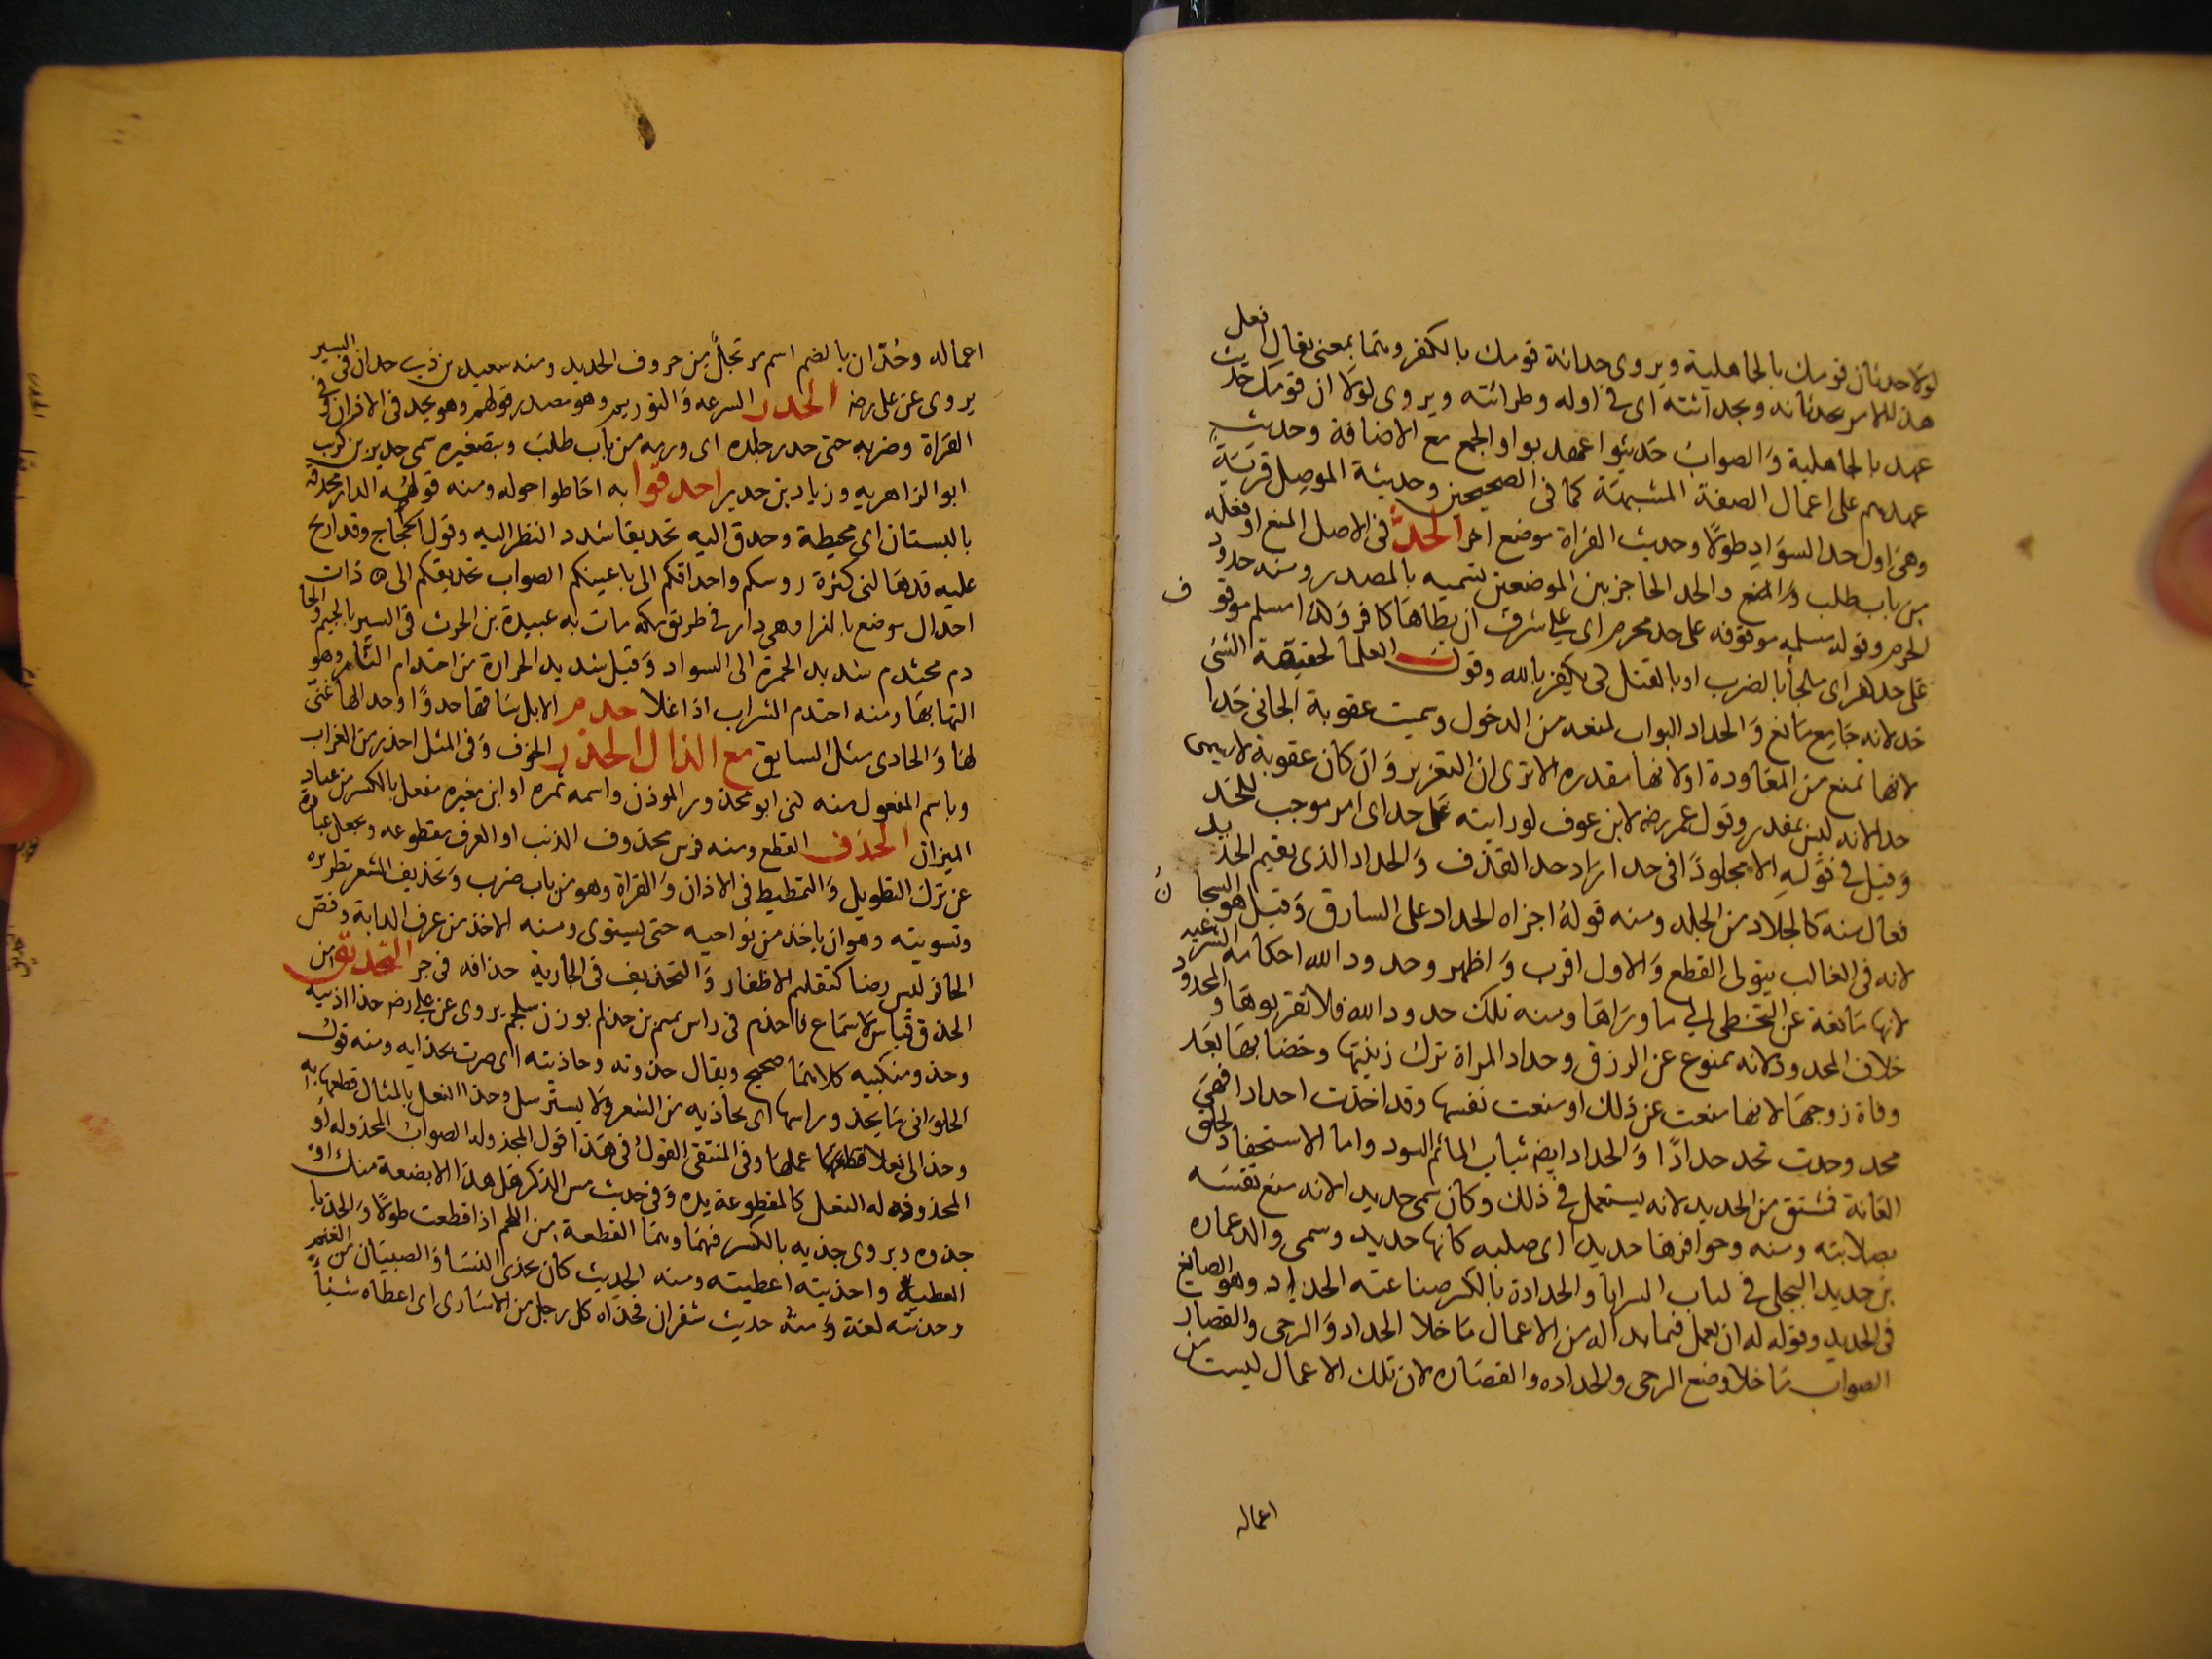 لولا حدثان قومك بالجاهلية ويروى حداثة قومك بالكفر وهما بمعنى يقال افعل
هذا الامر بحدثانه وبحداثته اى فى اوله وطرائته ويروى لولا ان قومك حديث
عهد بالجاهلية والصواب حديثو عهد بواو الجمع مع الاضافة وحديث
عهدهم على اعمال الصفة المشبهة كما فى الصحيحين وحديثة الموصل قرية
وهى اول حد السواد طولا وحديث الفراة موضع اخر الحد فى الاصل المنع وفعله
من باب طلب والحد الحاجز بين الموضعين تسميه بالمصدر ومنه حدود
الحرم وقوله مسلمه موقوفه على حد محرم اى على شرف ان يطاها كافر وكذا مسلم موقوف
على حد كفر اى ملجأ بالضرب او بالقتل لكى يكفر بالله وقول العلما لحقيقة الشى
حد لانه جامع مانع والحداد البواب لمنعه من الدخول وسميت عقوبة الجانى حدا
لانها تمنع من المعاودة او لانها مقدره الا ترى ان التعزير وان كان عقوبة لا يسمى
حدا لانه ليس بمقدر وقول عمر رضه لابن عوف لو رايته على حد اى امر موجب للحد
وقيل فى قوله الا مجلودا فى حد اراد حد القذف والحداد الذى يقيم الحد
فعال منه كالجلاد من الجلد ومنه قوله اجزاه الحداد على السارق وقيل هو السجان
لانه فى الغالب يتولى القطع والاول اقرب واظهر وحدود الله احكامه الشرعيه
لانها مانعة عن التخطى الى ما وراها ومنه تلك حدود الله فلا تقربوها والمحدود
خلاف المجدود لانه ممنوع عن الرزق وحداد المراة ترك زينتها وخضابها بعد
وفاة زوجها لانها منعت عن ذلك او منعت نفسها وقد احدت احدادا فهى
محد وحدت تحد حدادا والحداد ايضا ثياب الماتم السود واما الاستحداد لحلق
العانة فمشتق من الحديد لانه يستعمل فى ذلك وكان سمى حديدا لانه منع نفسه
بصلابته ومنه وحوافرها حديد اى صلبه كانها حديد وسمى والد عمارة
بن حديد البجلى فى لباب السرايا والحدادة بالكسر صناعته الحداد وهو الصانع
فى الحديد وقوله له ان يعمل فيما بدا له من الاعمال ما خلا الحداد والرحى والقصار
الصواب ما خلا وضع الرحى والحداده والقصاره لان تلك الاعمال ليست من
اعماله
اعماله وحدان بالضم اسم مرتجل من حروف الحديد ومنه سعيد بن ذى حدان فى السير
يروى عن على رضه الحدر السرعه والتوريم وهو مصدر قولهم وهو يحدر فى الاذان وفى
القراة وضربه حتى حدر جلده اى ورمه من باب طلب وبتصغيره سمى حدير بن كريب
ابو الزاهريه وزياد بن حدير احدقوا به احاطوا حوله ومنه قوله الدار محدقة
بالبستان اى محيطة وحدق اليه تحديقا شدد النظر اليه وقول الحجاج وقد ارتج
عليه قد هالنى كثرة روسكم واحداقكم الى باعينكم الصواب تحديقكم الى ذات
احدال موضع بالفرا وهى دار فى طريق مكه مات به عبيدة بن الحرث فى السير بالجيم والحا
دم محتدم شديد الحمرة الى السواد وقيل شديد الحرارة من احتدام النار وهو
التهابها ومنه احتدم الشراب اذا غلا حدو الابل ساقها حدوا وحدا لها غنى
لها والحادى مثل السابق مع الذال الحذر الخوف وفى المثل احذر من الغراب
وباسم المفعول منه كنى ابو محذوره الموذن واسمه سمره او ابن مغيره مفعل بالكسر من عيار
الميزان الحذف القطع ومنه فرس محذوف الذنب او العرف مقطوعه وجعل عبارة
عن ترك التطويل والتمطيط فى الاذان والقراة وهو من باب ضرب وتحذيف الشعر تطريره
وتسويته وهو ان ياخذ من نواحيه حتى يستوى ومنه الاخذ من عرف الدابة وقص
الحافر ليس رضا كتقليم الاظفار والتحذيف فى الجارية حذافه فى جر التحذيق من
الحذق قياس لا سماع حذلم فى راس تميم بن حذلم بوزن سلجم يروى عن على رضه حذا اذنيه
وحذو منكبيه كلاهما صحيح ويقال حذوته وحاذيته اى صرت بحذايه ومنه قول
الحلوانى ما يحذو راسها اى يحاذيه من الشعر ولا يسترسل وحذا النعل بالمثال قطعها به
وحذا لى نعلا قطعها عملها وفى المنتقى القول فى هذا قول المحذو له الصواب المحذو له او
المحذوة له النعل كالمقطوعة يده وفى حديث مس الذكر هل هذا الا بضعة منك او
حذوه ويروى حذيه بالكسر فيهما وهما القطعة من اللحم اذا قطعت طولا والحذيا
العطيه واحذيته اعطيته ومنه الحديث كان يحذى النسا والصبيان من الغنم
وحذيته لغة ومنه حديث شقران فحذاه كل رجل من الاسارى اى اعطاه شيئا